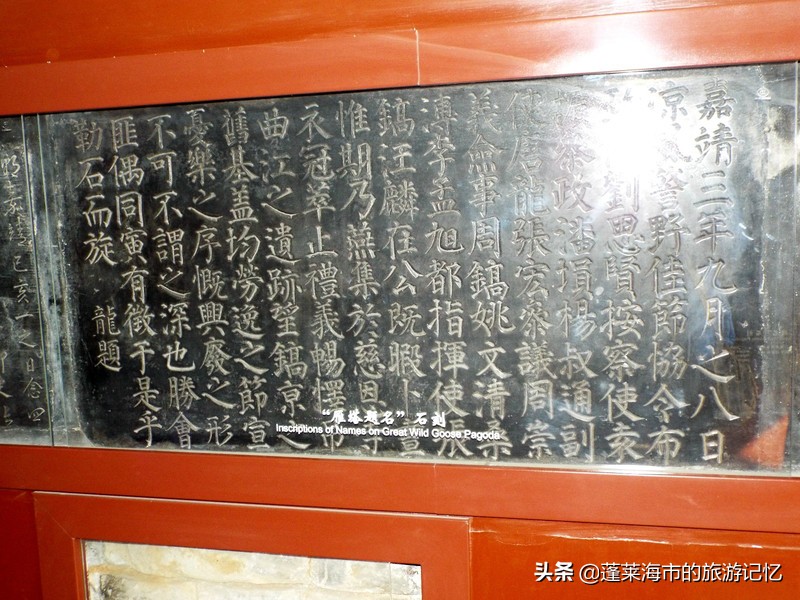 嘉靖三年九月之八日
涼風薈野佳節協令布
劉思賢按察使袁
叅政潘塤楊叔通副
使唐龍張宏叅議周崇
義僉事周鎬姚文清
溥李孟旭都指揮使
鎬汪麟在公既暇卜
惟期乃燕集於慈恩
衣冠萃止禮義暢懌
曲江之遺跡望鎬京之
舊基蓋均勞逸之節宣
憂樂之序慨興廢之形
不可不謂之深也勝會
匪偶同寅有徵于是乎
勒石而旋 龍題
“雁塔题名”石刻
Inscriptions of Names on Great Wild Goose Pagoda
头条 @蓬莱海市的旅游记忆